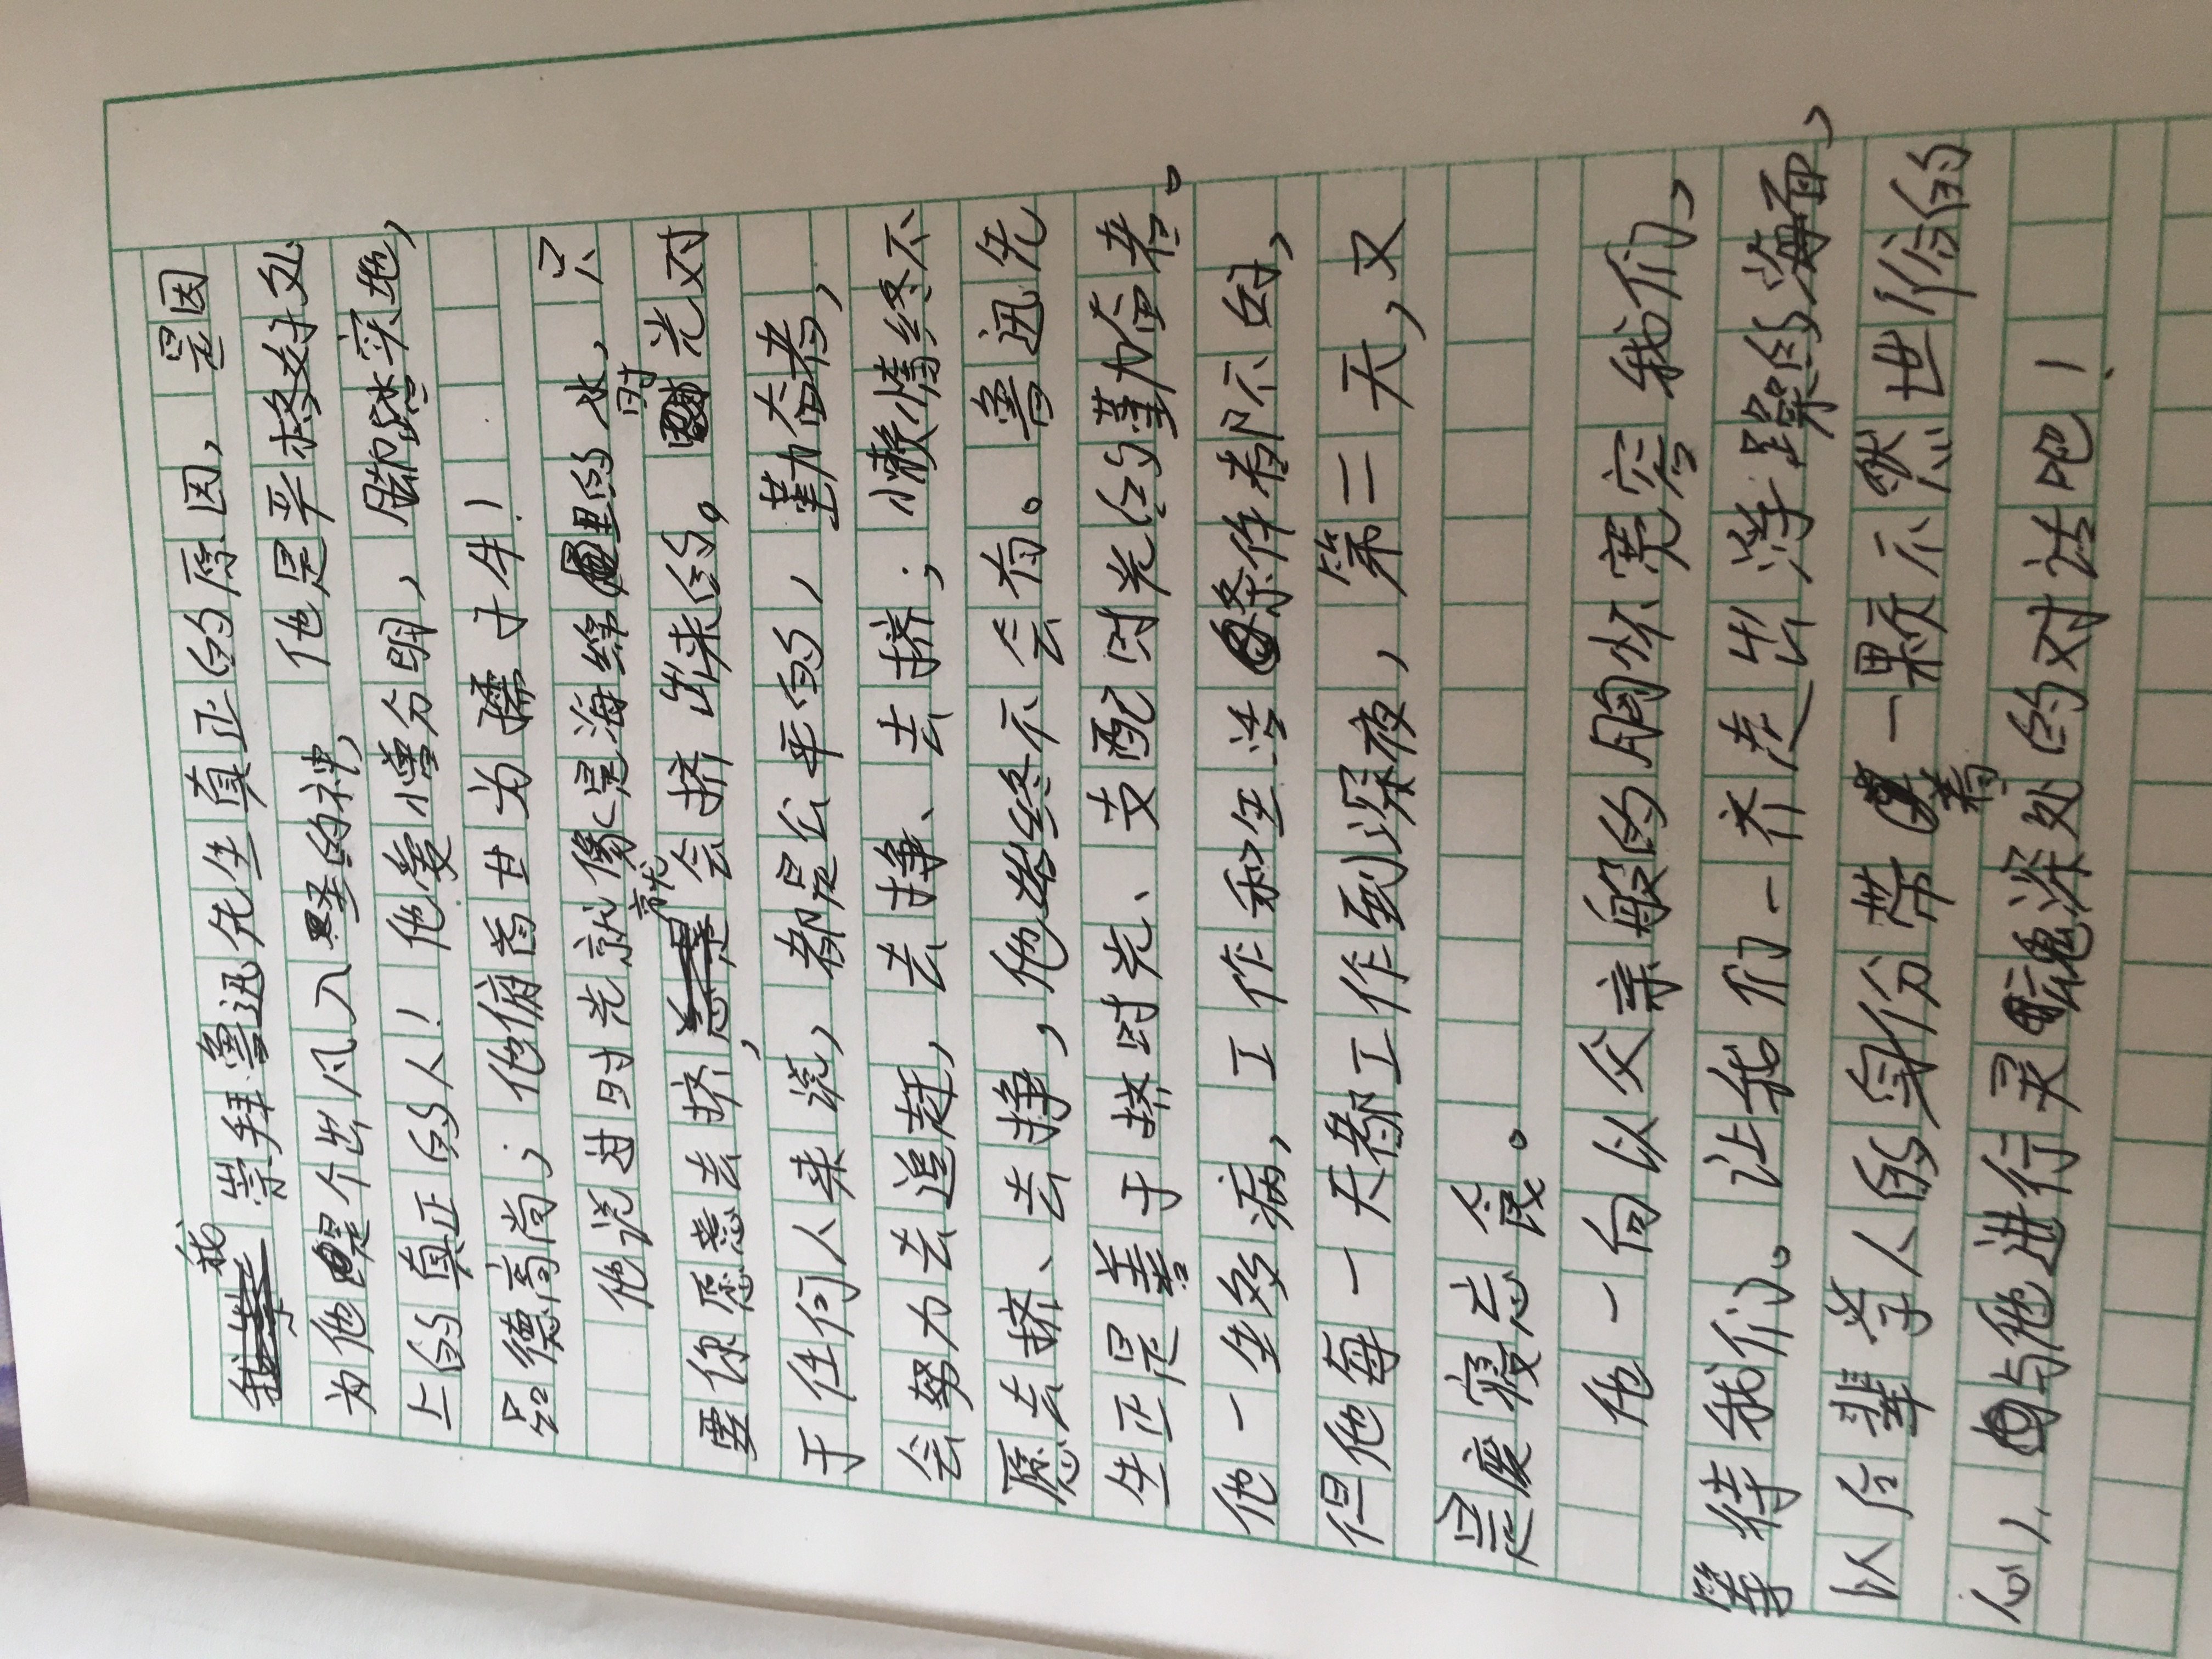 我崇拜鲁迅先生真正的原因，是因
为他是个出风入圣的神，他是平易好处
上的真正的人！他爱憎分明，脚踏实地，
品德高尚；他俯首甘为孺子牛！
他说过时光就像是海绵里的水，只
要你愿意去挤，就会挤出来的。时光对
于任何人来说，都是公平的，勤奋者，
会努力去追赶，去挣、去挤；懒惰终不
愿去挤、去挣，他始终不会有。鲁迅先
生正是善于挤时光、支配时光的勤奋者。
他一生多病，工作和生活条件都不好，
但他每一天都工作到深夜，第二天，又
是废寝忘食。
他一向以父亲般的胸怀宽容我们，
等待我们。让我们一齐走出浮躁的海面，
以后辈学人的身份带着一颗不然世俗的
心，与他进行灵魂深处的对话吧！